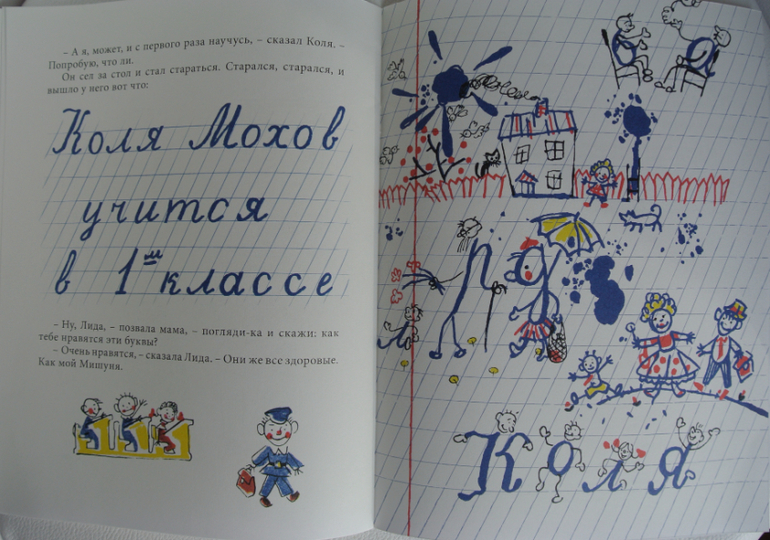 – А я, может, и с первого раза научусь, – сказал Коля. –
Попробую, что ли.
Он сел за стол и стал стараться. Старался, старался, и
вышло у него вот что:
Коля Мохов
учится
в 1ᵐ классе
– Ну, Лида, – позвала мама, – погляди-ка и скажи: как
тебе нравятся эти буквы?
– Очень нравятся, – сказала Лида. – Они же все здоровые.
Как мой Мишуня.
о а
л п я
Коля